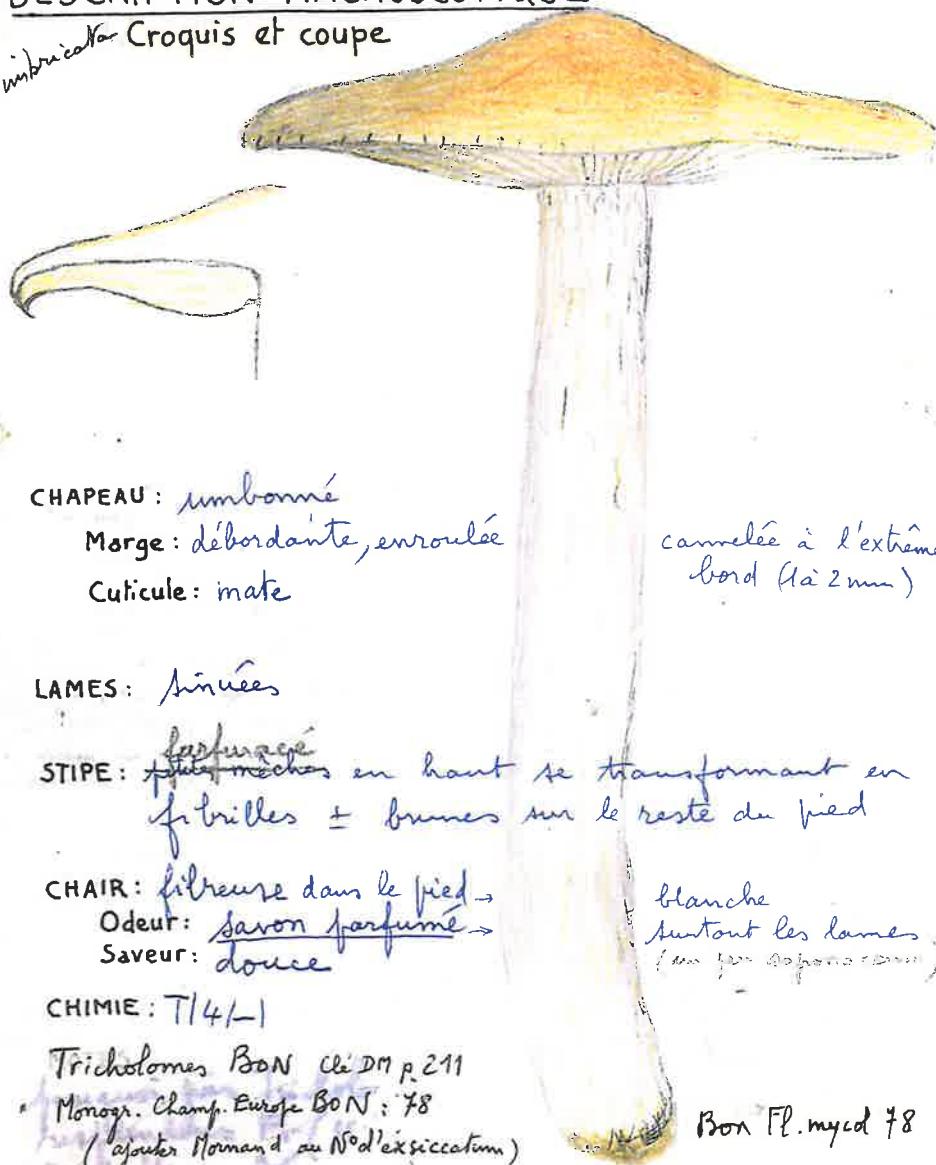 DESCRIPTION MACROSCOPIQUE
imbricata Croquis et coupe
CHAPEAU : umbonné
Marge : débordante, enroulée cannelée à l'extrême
bord (1 à 2 mm)
Cuticule : mate
LAMES : sinuées
furfuracé
STIPE : petites mèches en haut se transformant en
fibrilles ± brunes sur le reste du pied
CHAIR : fibreuse dans le pied → blanche
Odeur : savon parfumé → surtout les lames
(un peu saponaceum)
Saveur : douce
CHIMIE : T/4/–/
Tricholomes BON Clé DM p. 211
Monogr. Champ. Europe BON : 78
(ajouter Mornand au N° d'éxsiccatum)
Bon Fl. mycol 78